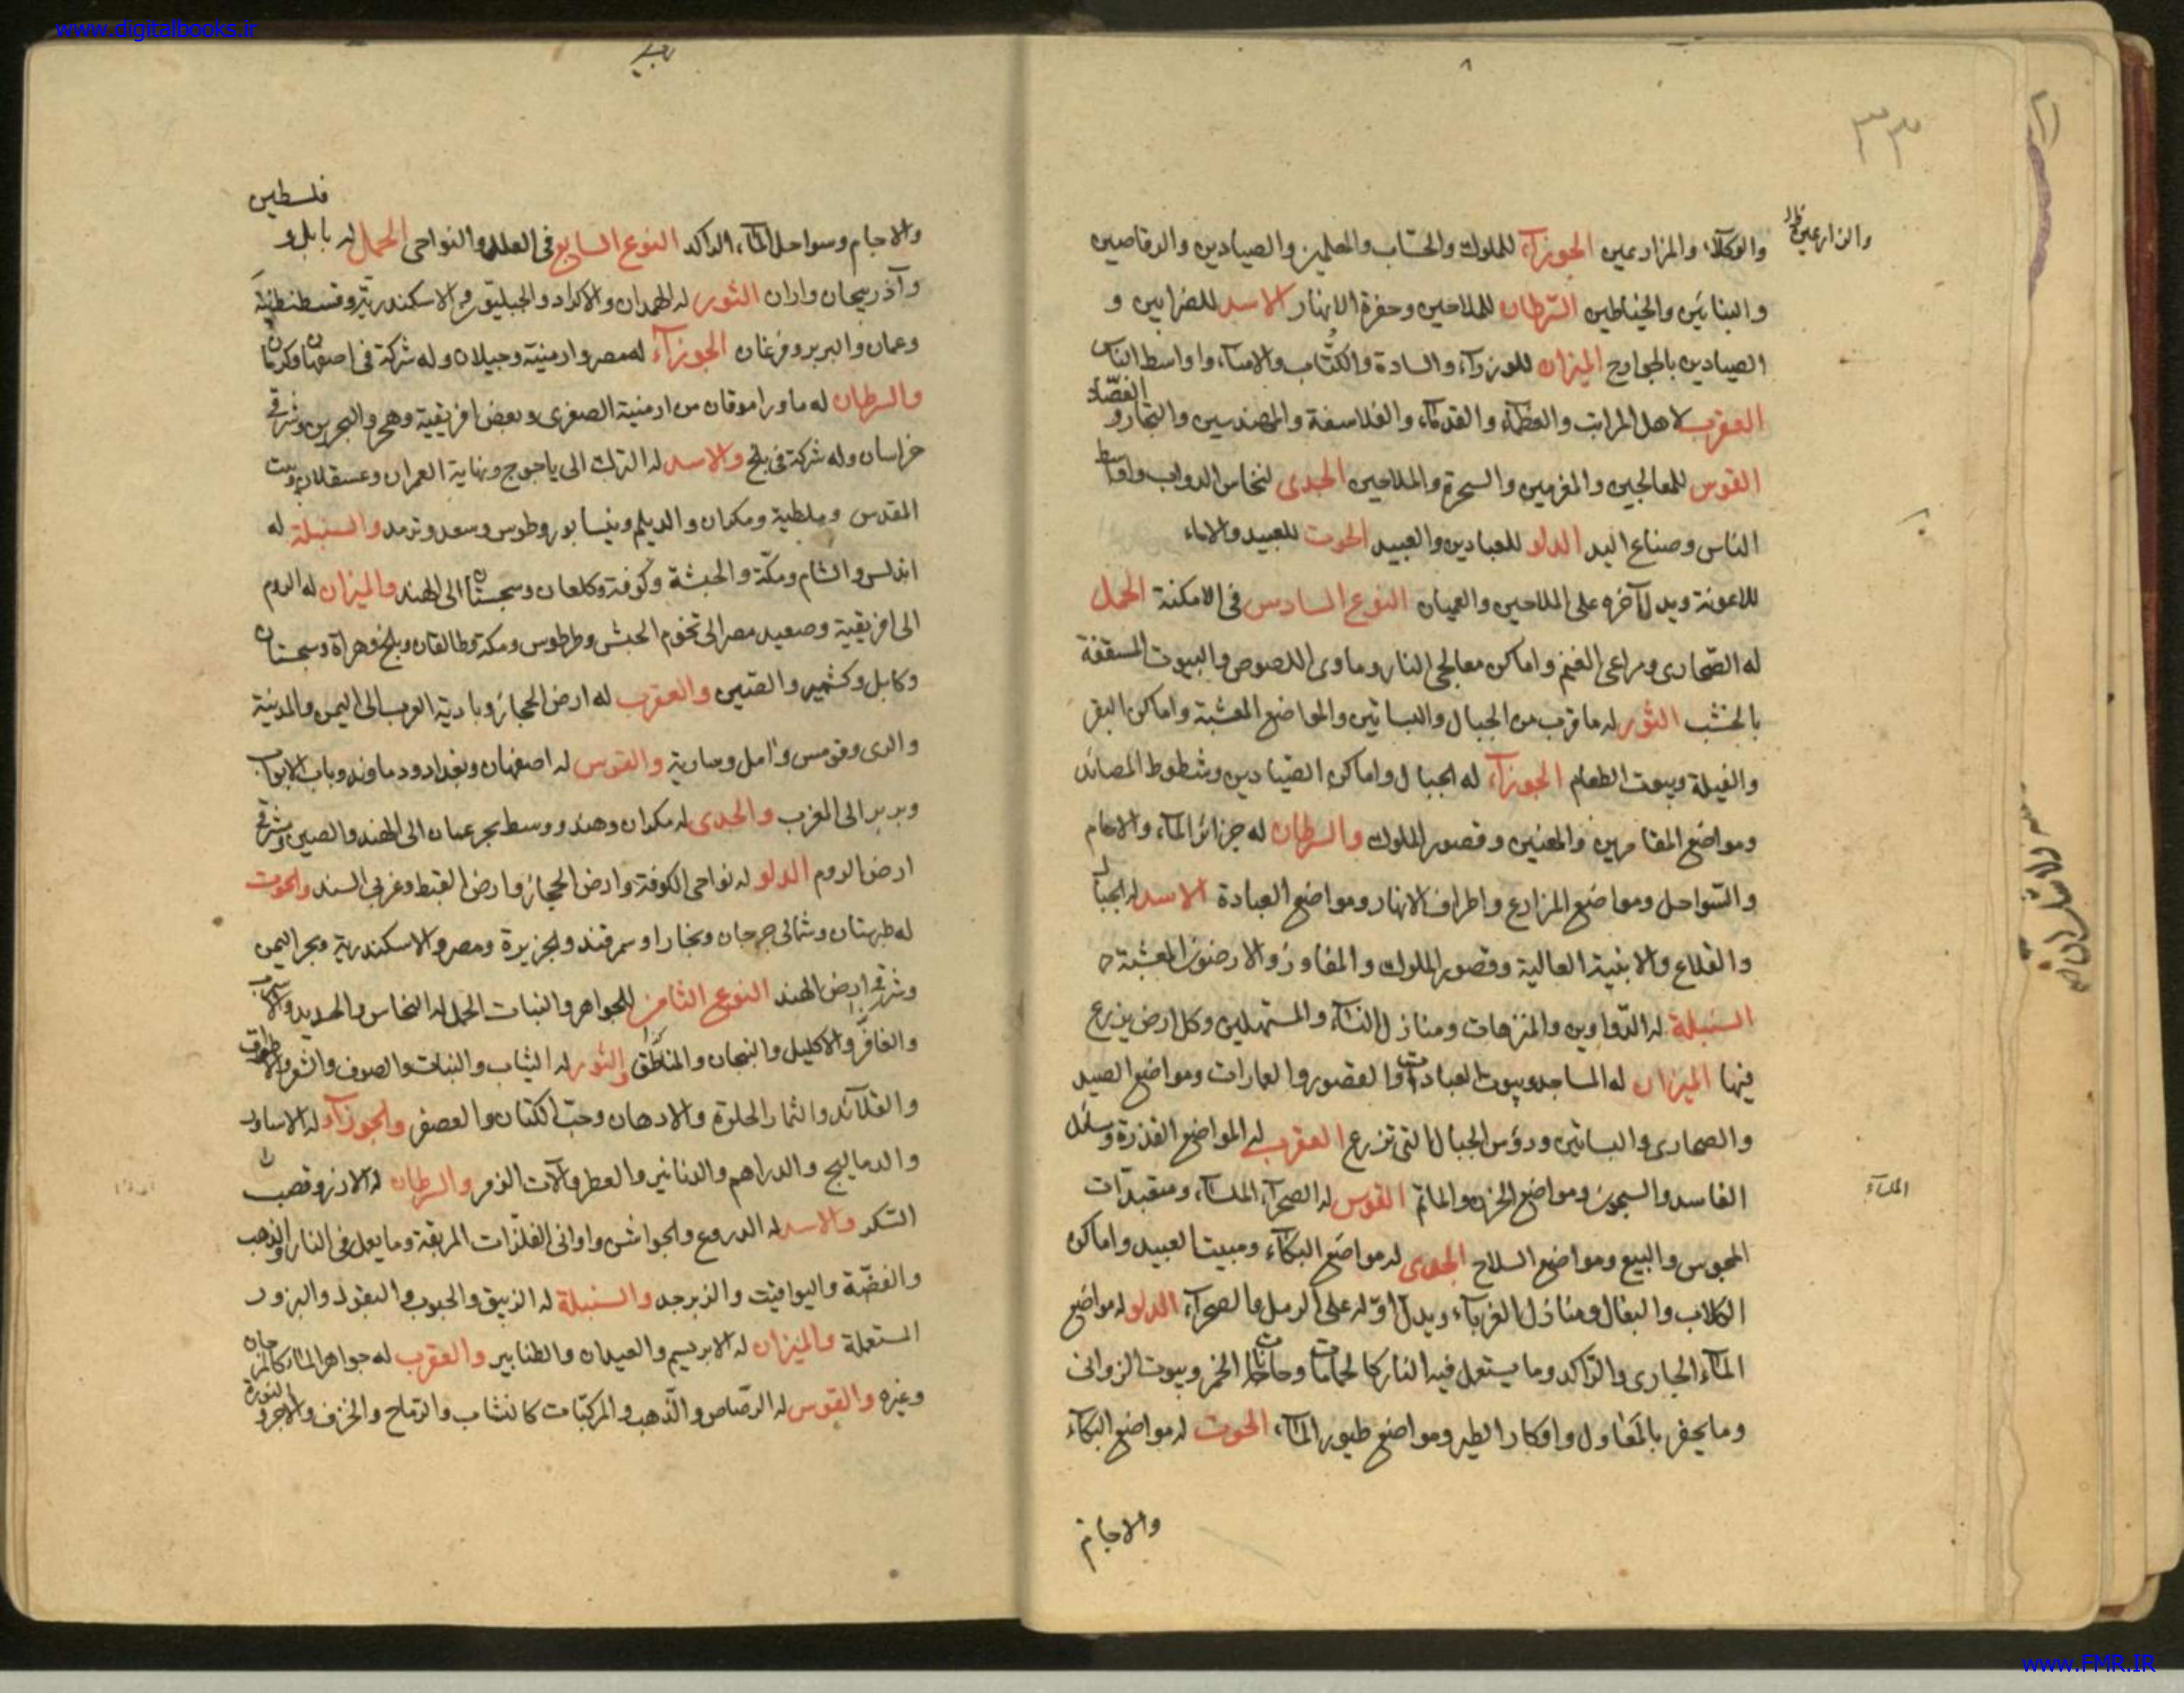 www.digitalbooks.ir
٨
٣٣
والوكلاء والمزارعين الجوزآء للملوك والحسّاب والمعلمين والصيادين والرقاصين
والزارعين
والبنائين والخياطين السّرطان للملاحين وحفرة الانهار الاسد للضرابين و
الصيادين بالجوارح الميزان للوزرآء والسادة والكتّاب والامنآء واواسط الناس
العقرب لاهل المراتب والعظمآء والقدمآء والفلاسفة والمهندسين والتجار و الفصّاد
القوس للمعالجين والمغرمين والسحرة والملاحين الجدى لنخاس الدواب واواسط
الناس وصناع اليد الدلو للعبادين والعبيد الحوت للعبيد والاماء
للاعونة ويدل آخره على الملاحين والعميان النوع السادس فى الامكنة الحمل
له الصّحارى ومراعى الغنم واماكن معالجى النار وماوى اللصوص والبيوت المسقفة
بالخشب الثور له ما قرب من الجبال والبساتين والمواضع المعشبة واماكن البقر
والفيلة وبيوت الطعام الجوزآء له الجبال واماكن الصّيادين وشطوط المصائد
ومواضع المقامرين والمغنين وقصور الملوك والسرطان له جزائر المآء والاجام
والسّواحل ومواضع المزارع واطراف الانهار ومواضع العبادة الاسد له الجبال
والقلاع والابنية العالية وقصور الملوك والمفاوز والارضون المعشبة
السنبلة له الدّواوين والمنزهات ومنازل النسآء والمستهلين وكل ارض يزرع
فيها الميزان له المساجد وبيوت العبادات والقصور والعمارات ومواضع الصيد
والصحارى والبساتين ورؤس الجبال التى تزرع العقرب له المواضع القذرة
الفاسد والسجون ومواضع الحزن والماتم القوس له الصحرآء الملسآء ومتعبدات
الملسآء
المجوس والبيع ومواضع السلاح الجدى له مواضع البكآء ومبيت العبيد واماكن
الكلاب والبغال ومنازل الغربآء ويدل اوّله على الرمل والصحرآء الدلو له مواضع
المآء الجارى والرّاكد وما يستعمل فيه النار كالحمامات وحانات الخمر وبيوت الزوانى
وما يحفر بالمعاول واوكار الطير ومواضع طيور المآء الحوت له مواضع البكآء
والاجام
والاجام وسواحل المآء الراكد النوع السابع فى البلد والنواحى الحمل له بابل و فلسطين
وآذربيجان واران الثور له الهمدان والاكراد والجبليّون والاسكندرية وقسطنطنية
وعمان والبربر وفرغان الجوزآء له مصر وارمنية وجيلان وله شركة فى اصفهان وكرمان
والسرطان له ما ورا موقان من ارمنية الصغرى وبعض افريقية وهجر والبحرين وشرقى
خراسان وله شركة فى بلخ والاسد له الترك الى ياجوج ونهاية العمران وعسقلان وبيت
المقدس وملطية ومكران والديلم ونيسابور وطوس وسعد وترمد والسنبلة له
اندلس والشام ومكّة والحبشة وكوفة وكلعان وسجستان الى الهند والميزان له الروم
الى افريقية وصعيد مصر الى تخوم الحبش وطرطوس ومكة وطالقان وبلخ وهراة وسجستان
وكابل وكشمير والصّين والعقرب له ارض الحجاز وبادية العرب الى اليمن والمدينة
والرى وقومس وآمل وسارية والقوس له اصفهان وبغداد ودماوند وباب الابواب
وبربر الى المغرب والجدى له مكران وهند ووسط بحر عمان الى الهند والصين وشرقى
ارض الروم الدلو له نواحى الكوفة وارض الحجاز وارض القبط وغربى السند والحوت
له طبرستان وشمالى جرجان وبخارا وسمرقند والجزيرة ومصر والاسكندرية وبحر اليمن
وشرقى ارض الهند النوع الثامن للجواهر والنبات الحمل له النحاس والحديد
والاكليل والتيجان والمناطق والثور له الثياب والنبات والصوف والشعر
والقلآئد والثمار الحلوة والادهان وحب الكتان والعصفر والجوزآء له الاساور
والدماليج والدراهم والدنانير والعطر وآلات الزمر والسرطان له الارز وقصب
السّكر والاسد له الدروع والجواشن واوانى الفلزّات المرتفعة وما يعمل فى النار والذهب
والفضّة واليواقيت والزبرجد والسنبلة له الزيبق والحبوب والبقول والبزور
المستعملة والميزان له الابريسم والعيدان والطنابير والعقرب له جواهر المآء كالمرجان
وغيره والقوس له الرّصاص والذّهب والمركّبات كالنشاب والرماح والخزف والاجر و النورة
www.FMR.IR